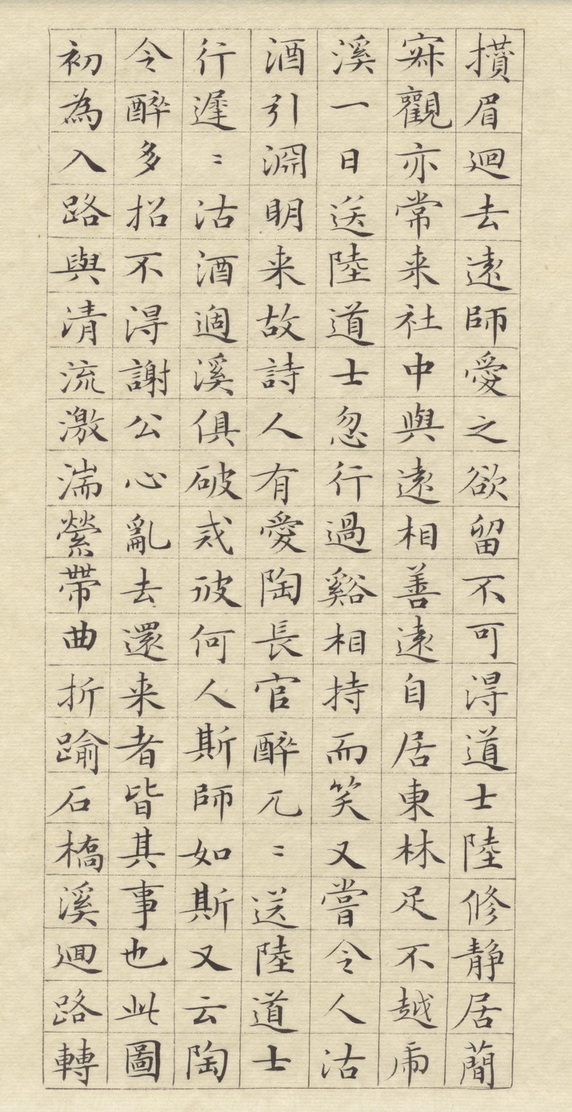 攢眉迴去遠師愛之欲留不可得道士陸修静居蕳
寂觀亦常来社中與遠相善遠自居東林足不越虎
溪一日送陸道士忽行過谿相持而笑又嘗令人沽
酒引淵明来故詩人有愛陶長官醉兀〻送陸道士
行遲〻沽酒過溪俱破戒彼何人斯師如斯又云陶
令醉多招不得謝公心亂去還来者皆其事也此圖
初為入路與清流激湍縈帶曲折踰石橋溪迴路轉